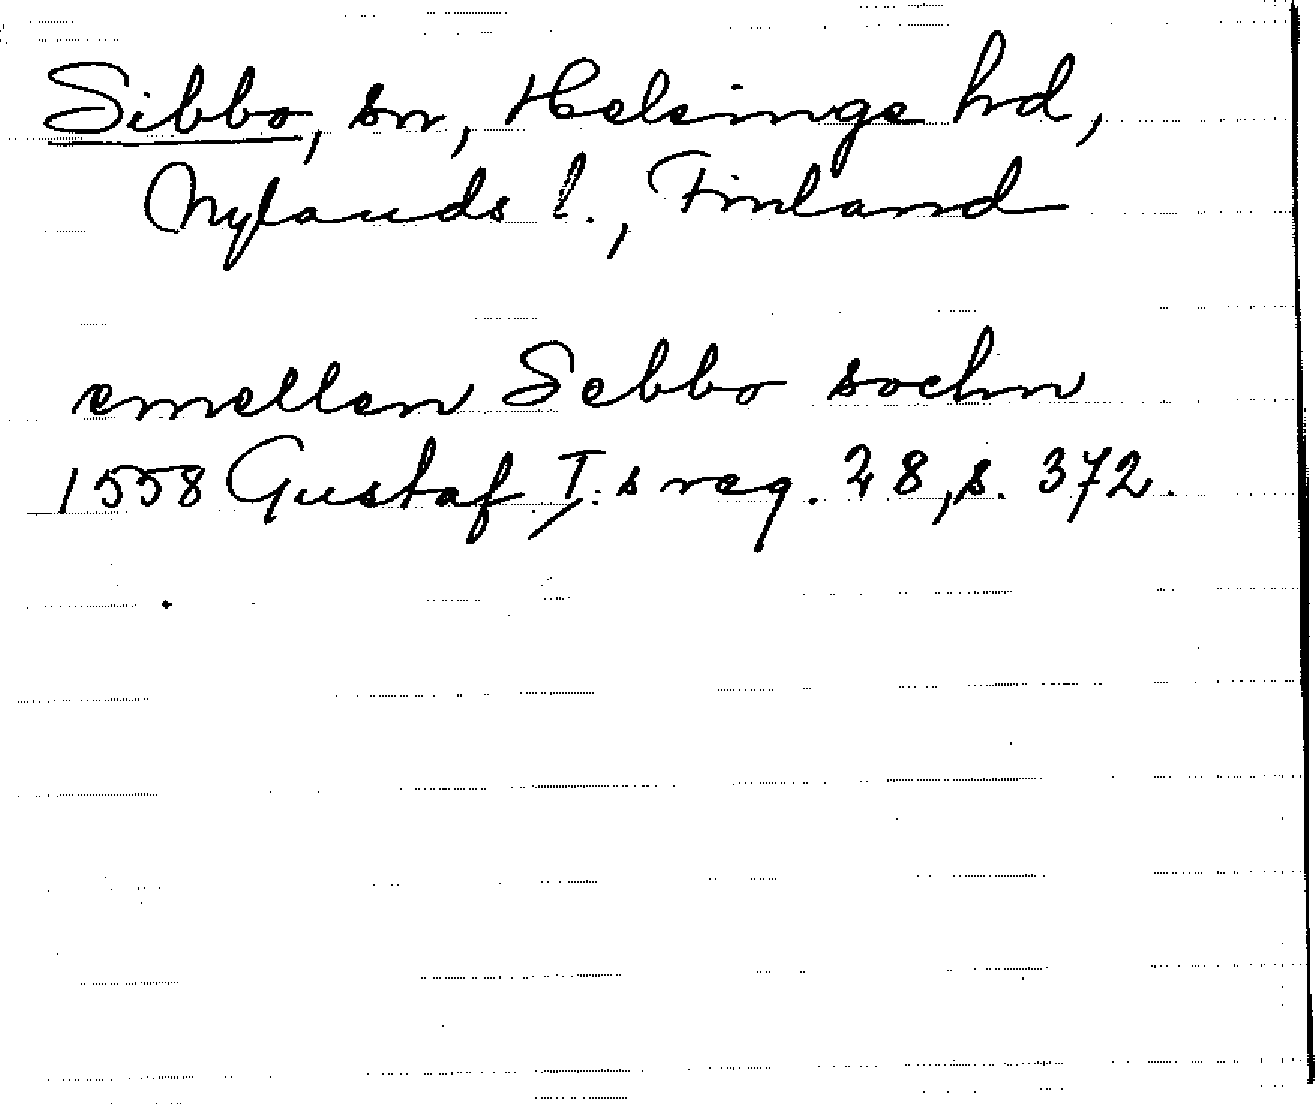 Sibbo, sn, Helsinge hd,
Nylands l., Finland
emellan Sebbo sochn
1558 Gustaf I:s reg. 28, s. 372.